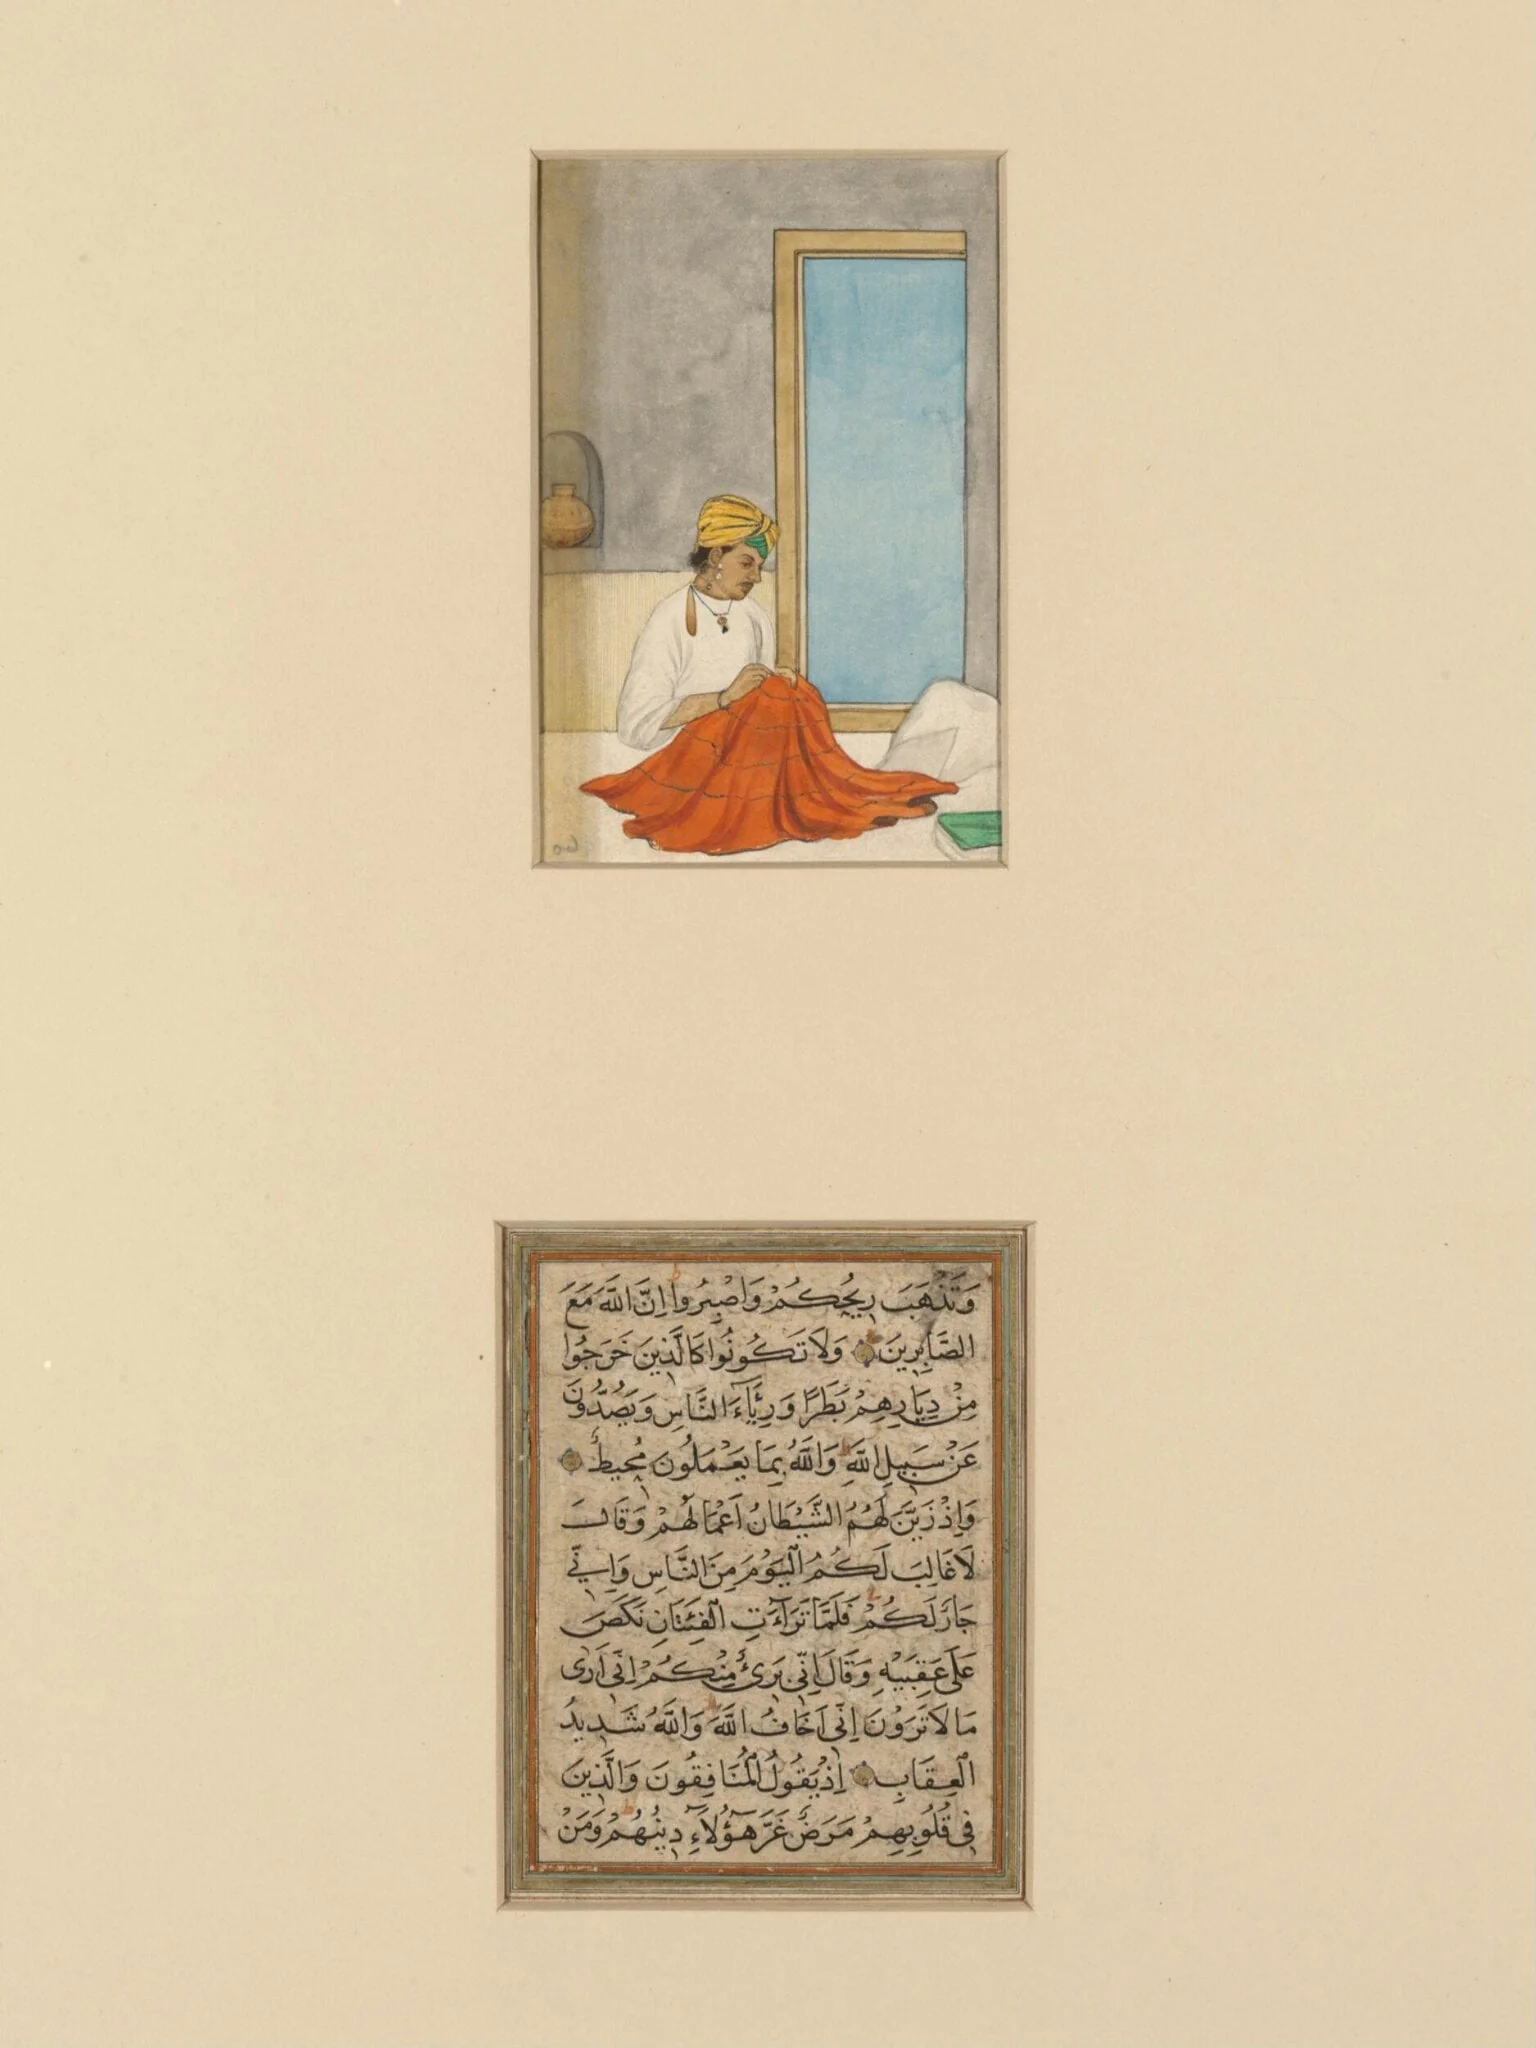 وَتَذْهَبَ رِيحُكُمْ وَاصْبِرُوا اِنَّ اللَّهَ مَعَ
الصَّابِرِينَ وَلَا تَكُونُوا كَالَّذِينَ خَرَجُوا
مِنْ دِيَارِهِمْ بَطَرًا وَرِئَآءَ النَّاسِ وَيَصُدُّونَ
عَنْ سَبِيلِ اللَّهِ وَاللَّهُ بِمَا يَعْمَلُونَ مُحِيطٌ
وَاِذْ زَيَّنَ لَهُمُ الشَّيْطَانُ اَعْمَالَهُمْ وَقَالَ
لَا غَالِبَ لَكُمُ الْيَوْمَ مِنَ النَّاسِ وَاِنِّي
جَارٌ لَكُمْ فَلَمَّا تَرَآءَتِ الْفِئَتَانِ نَكَصَ
عَلَى عَقِبَيْهِ وَقَالَ اِنِّي بَرِئٌ مِنْكُمْ اِنِّي اَرَى
مَا لَا تَرَوْنَ اِنِّي اَخَافُ اللَّهَ وَاللَّهُ شَدِيدُ
الْعِقَابِ اِذْ يَقُولُ الْمُنَافِقُونَ وَالَّذِينَ
فِي قُلُوبِهِمْ مَرَضٌ غَرَّ هَٓؤُلَآءِ دِينُهُمْ وَمَنْ